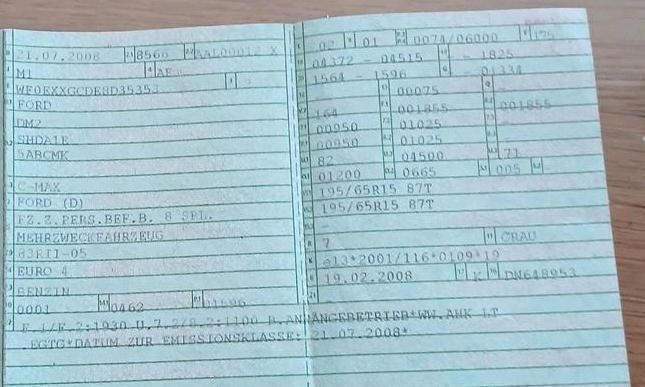 21.07.2008 8566 AAL00012 X
M1 AF
WF0EXXGCDE8D35353
FORD
DM2
SHDA1E
5ABCMK
C-MAX
FORD (D)
FZ.Z.PERS.BEF.B. 8 SPL.
MEHRZWECKFAHRZEUG
83RII-05
EURO 4
BENZIN
0001 0462 01596
02 01 0074/06000 175
04372 - 04515 - 1825
1564 - 1596 - 01334
00075 -
164 001855 001855
00950 01025 -
00950 01025 -
82 04500 71
01200 0665 005 -
195/65R15 87T
195/65R15 87T
-
7 GRAU
e13*2001/116*0109*19
19.02.2008 K DN648953
F.1/F.2:1930 U.7.2/8.2:1100 B.ANHÄNGEBETRIEB*WW.AHK LT
EGTG*DATUM ZUR EMISSIONSKLASSE: 21.07.2008*